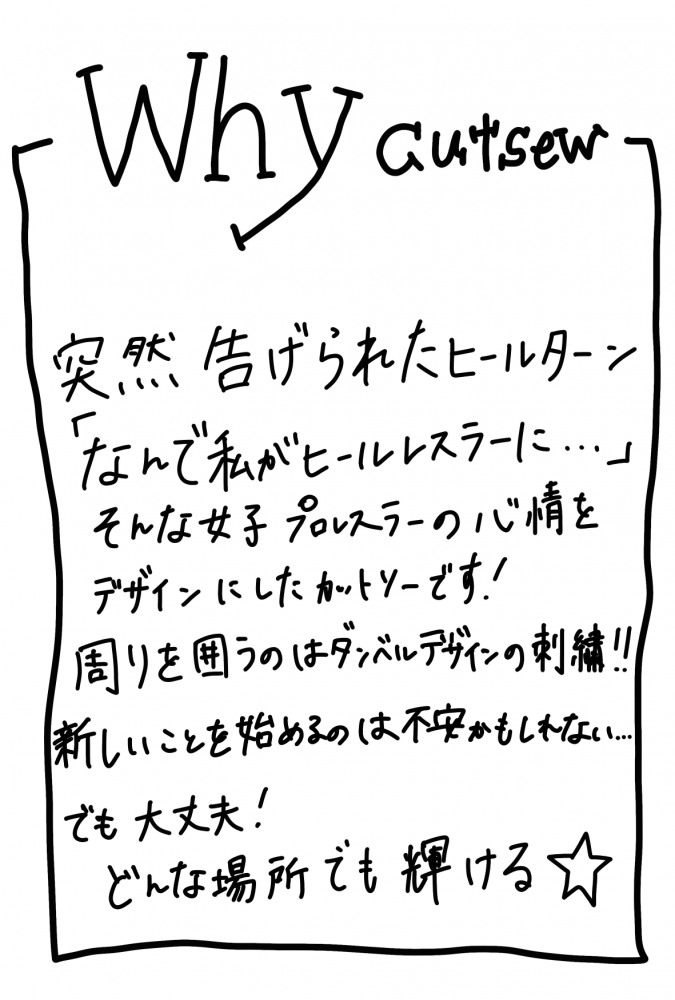 Why cutsew
突然告げられたヒールターン
「なんで私がヒールレスラーに…」
そんな女子プロレスラーの心情を
デザインにしたカットソーです!
周りを囲うのはダンベルデザインの刺繍!!
新しいことを始めるのは不安かもしれない…
でも大丈夫!
どんな場所でも輝ける☆